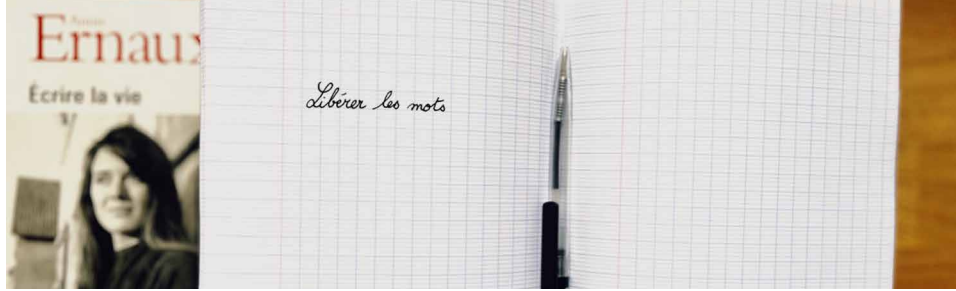 Annie
Ernaux
Écrire la vie
Libérer les mots